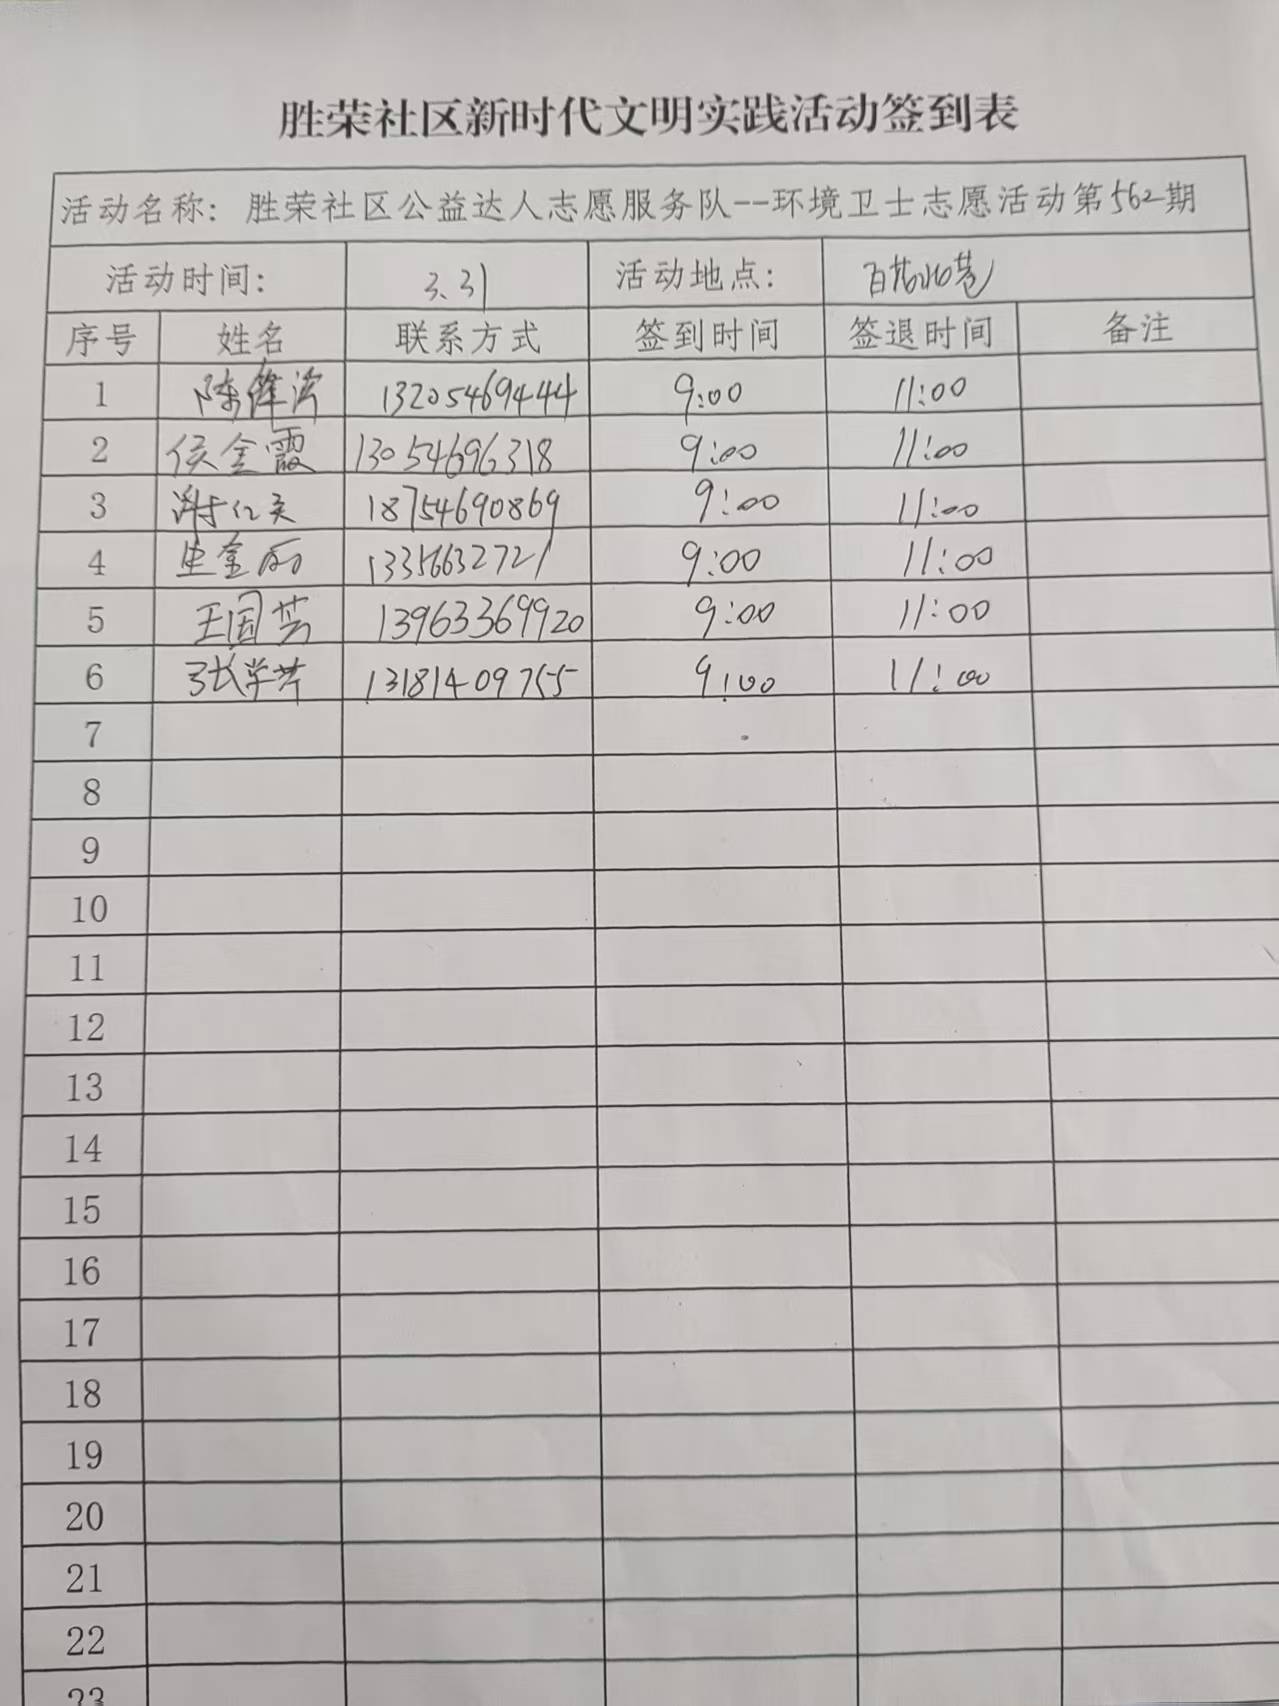 胜荣社区新时代文明实践活动签到表
活动名称：胜荣社区公益达人志愿服务队--环境卫士志愿活动第562期
活动时间： 3.31 活动地点：
序号 姓名 联系方式 签到时间 签退时间 备注
1 13205469444 9:00 11:00
2 侯金霞 13054696318 9:00 11:00
3 18754690869 9:00 11:00
4 13356632721 9:00 11:00
5 王国芸 13963369920 9:00 11:00
6 张学芹 13181409755 9:00 11:00
7
8
9
10
11
12
13
14
15
16
17
18
19
20
21
22
23